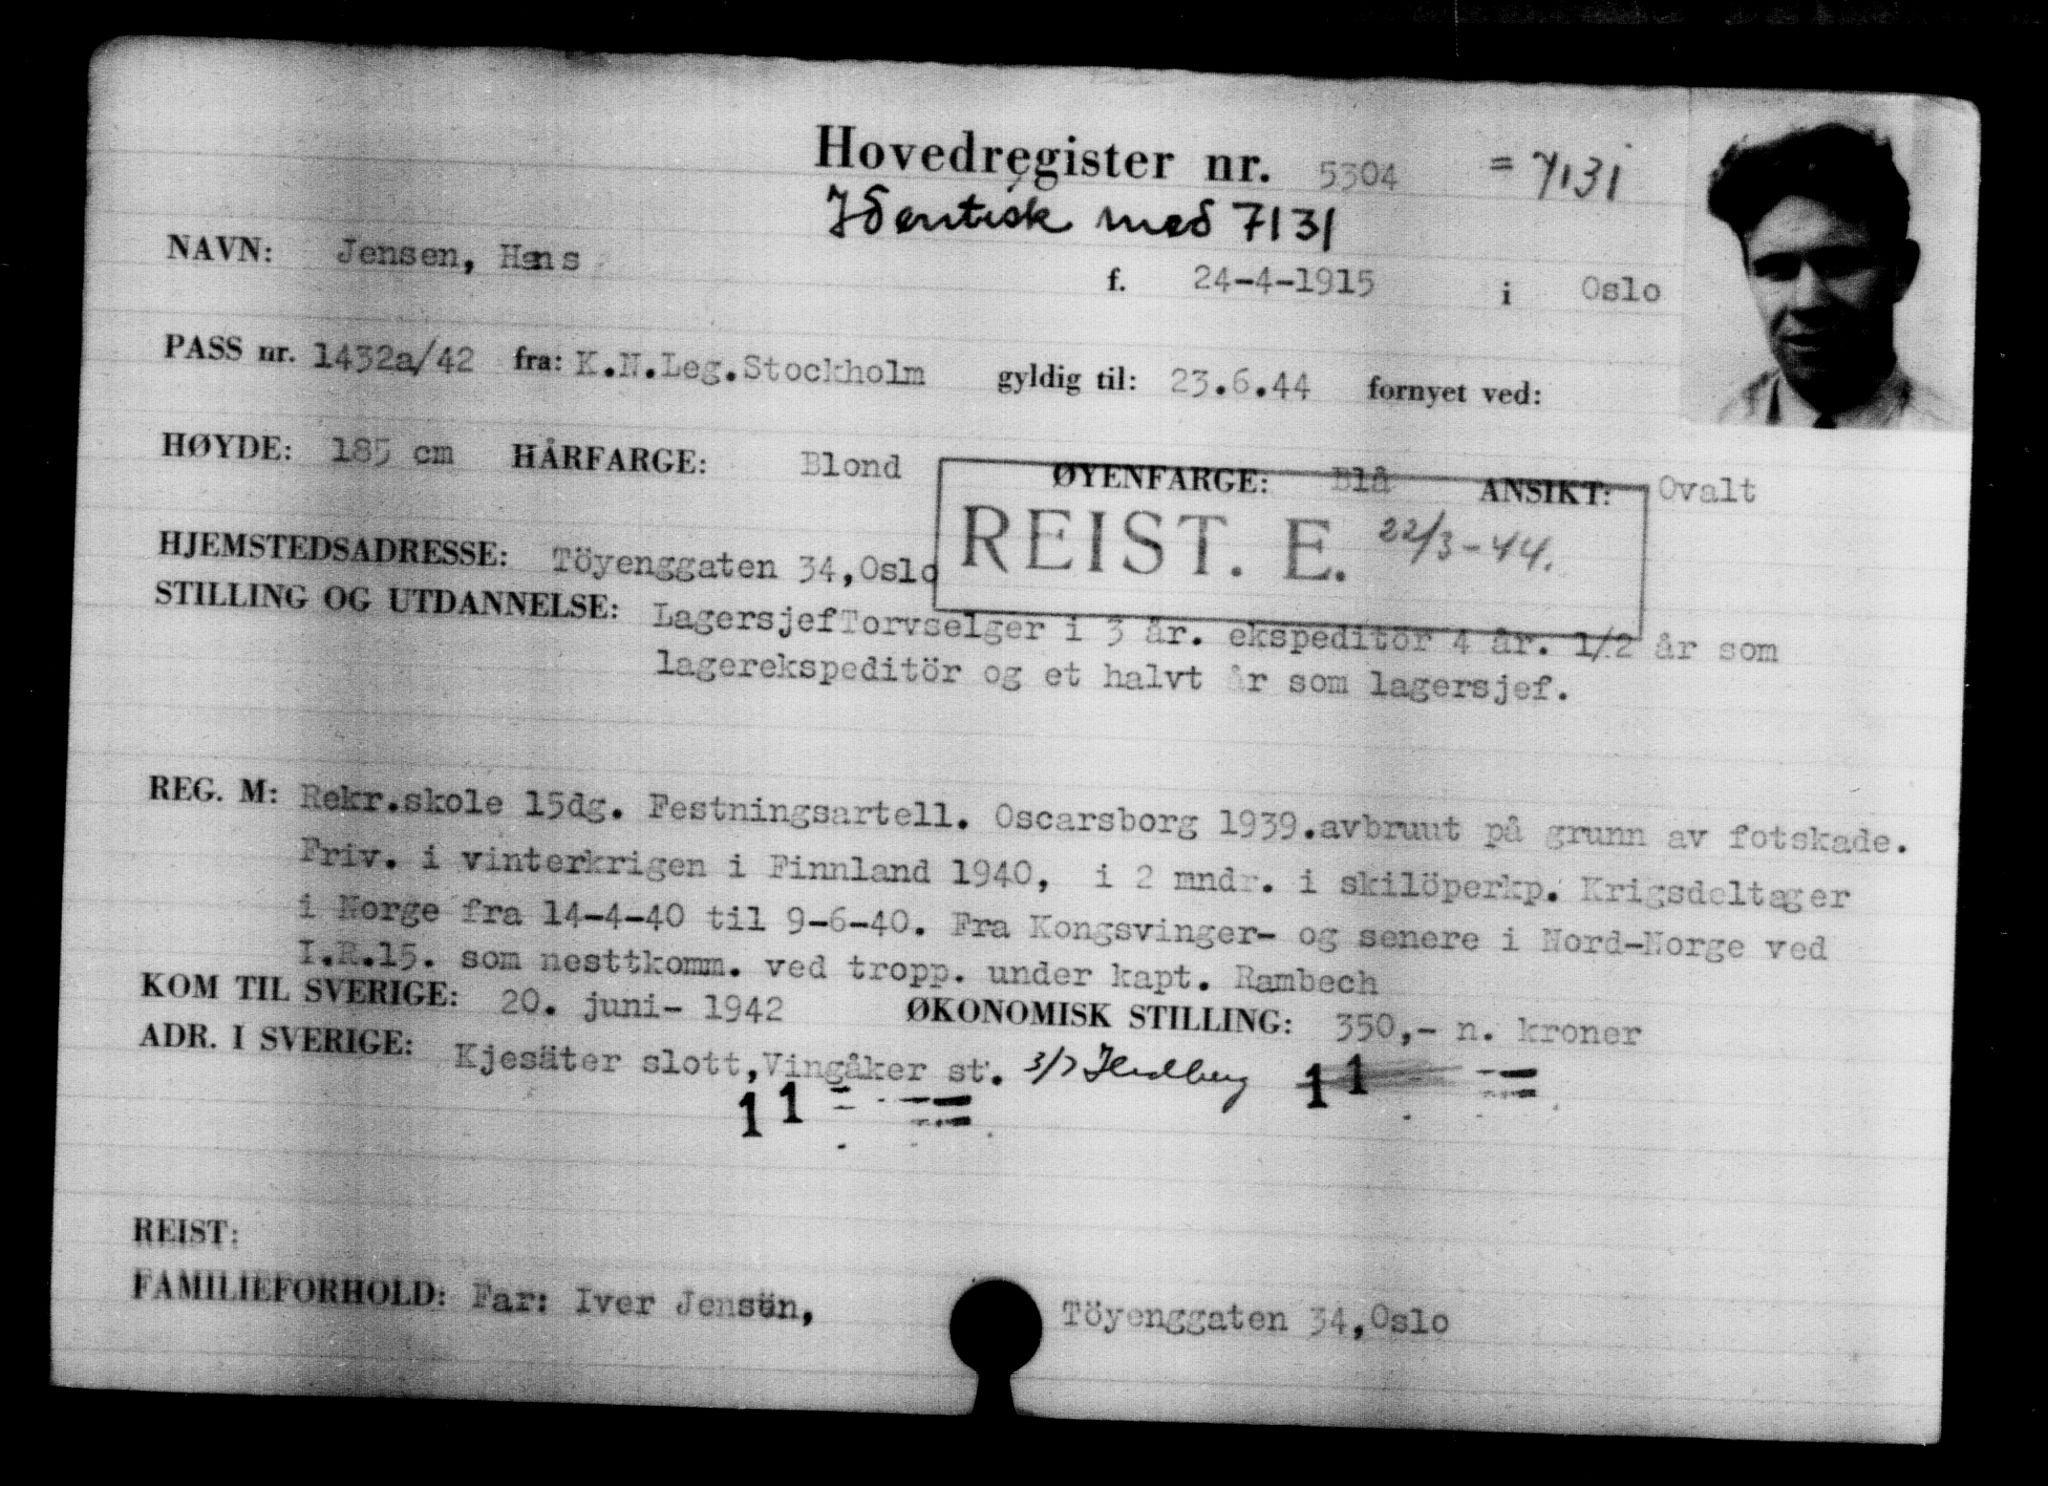 Hovedregister nr. 5304 = 7131
Identisk med 7131
NAVN: Jensen, Hans f. 24-4-1915 i Oslo
PASS nr. 1432a/42 fra: K.N.Leg.Stockholm gyldig til: 23.6.44 fornyet ved:
HØYDE: 185 cm HÅRFARGE: Blond ØYENFARGE: Blå ANSIKT: Ovalt
REIST. E. 22/3-44.
HJEMSTEDSADRESSE: Töyenggaten 34,Oslo
STILLING OG UTDANNELSE: LagersjefTorvselger i 3 år. ekspeditör 4 år. 1/2 år som
lagerekspeditör og et halvt år som lagersjef.
REG. M: Rekr.skole 15dg. Festningsartell. Oscarsborg 1939.avbruut på grunn av fotskade.
Friv. i vinterkrigen i Finnland 1940, i 2 mndr. i skilöperkp. Krigsdeltager
i Norge fra 14-4-40 til 9-6-40. Fra Kongsvinger- og senere i Nord-Norge ved
I.R.15. som nesttkomm. ved tropp. under kapt. Rambech
KOM TIL SVERIGE: 20. juni- 1942 ØKONOMISK STILLING: 350,- n. kroner
ADR. I SVERIGE: Kjesäter slott,Vingåker st. 3/7 11
11
REIST:
FAMILIEFORHOLD: Far: Iver Jensen, Töyenggaten 34,Oslo